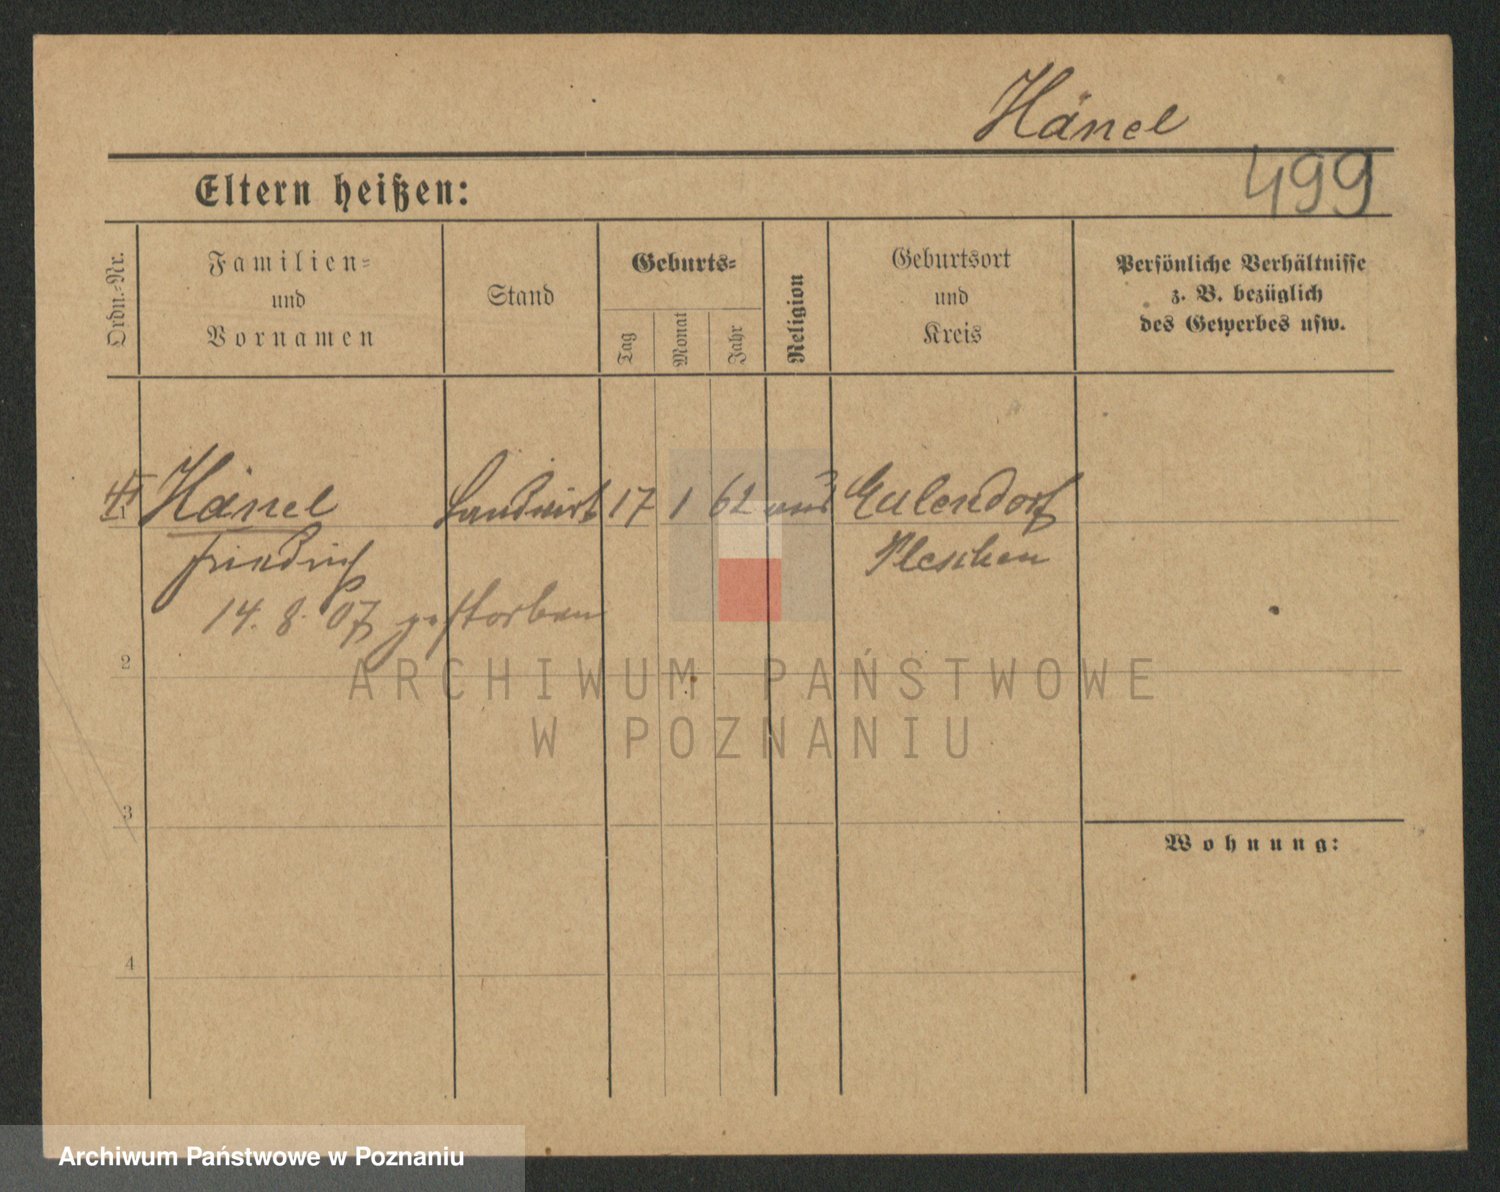 Hänel
499
Eltern heißen:
Ordn.-Nr.
Familien- und Vornamen
Stand
Geburts-
Tag
Monat
Jahr
Religion
Geburtsort und Kreis
Persönliche Verhältnisse
z. B. bezüglich
des Gewerbes usw.
Hänel Landwirt 17 1 62 Eulendorf
Friedrich Pleschen
14. 8. 07 gestorben
2
ARCHIWUM PAŃSTWOWE
W POZNANIU
3
Wohnung:
4
Archiwum Państwowe w Poznaniu